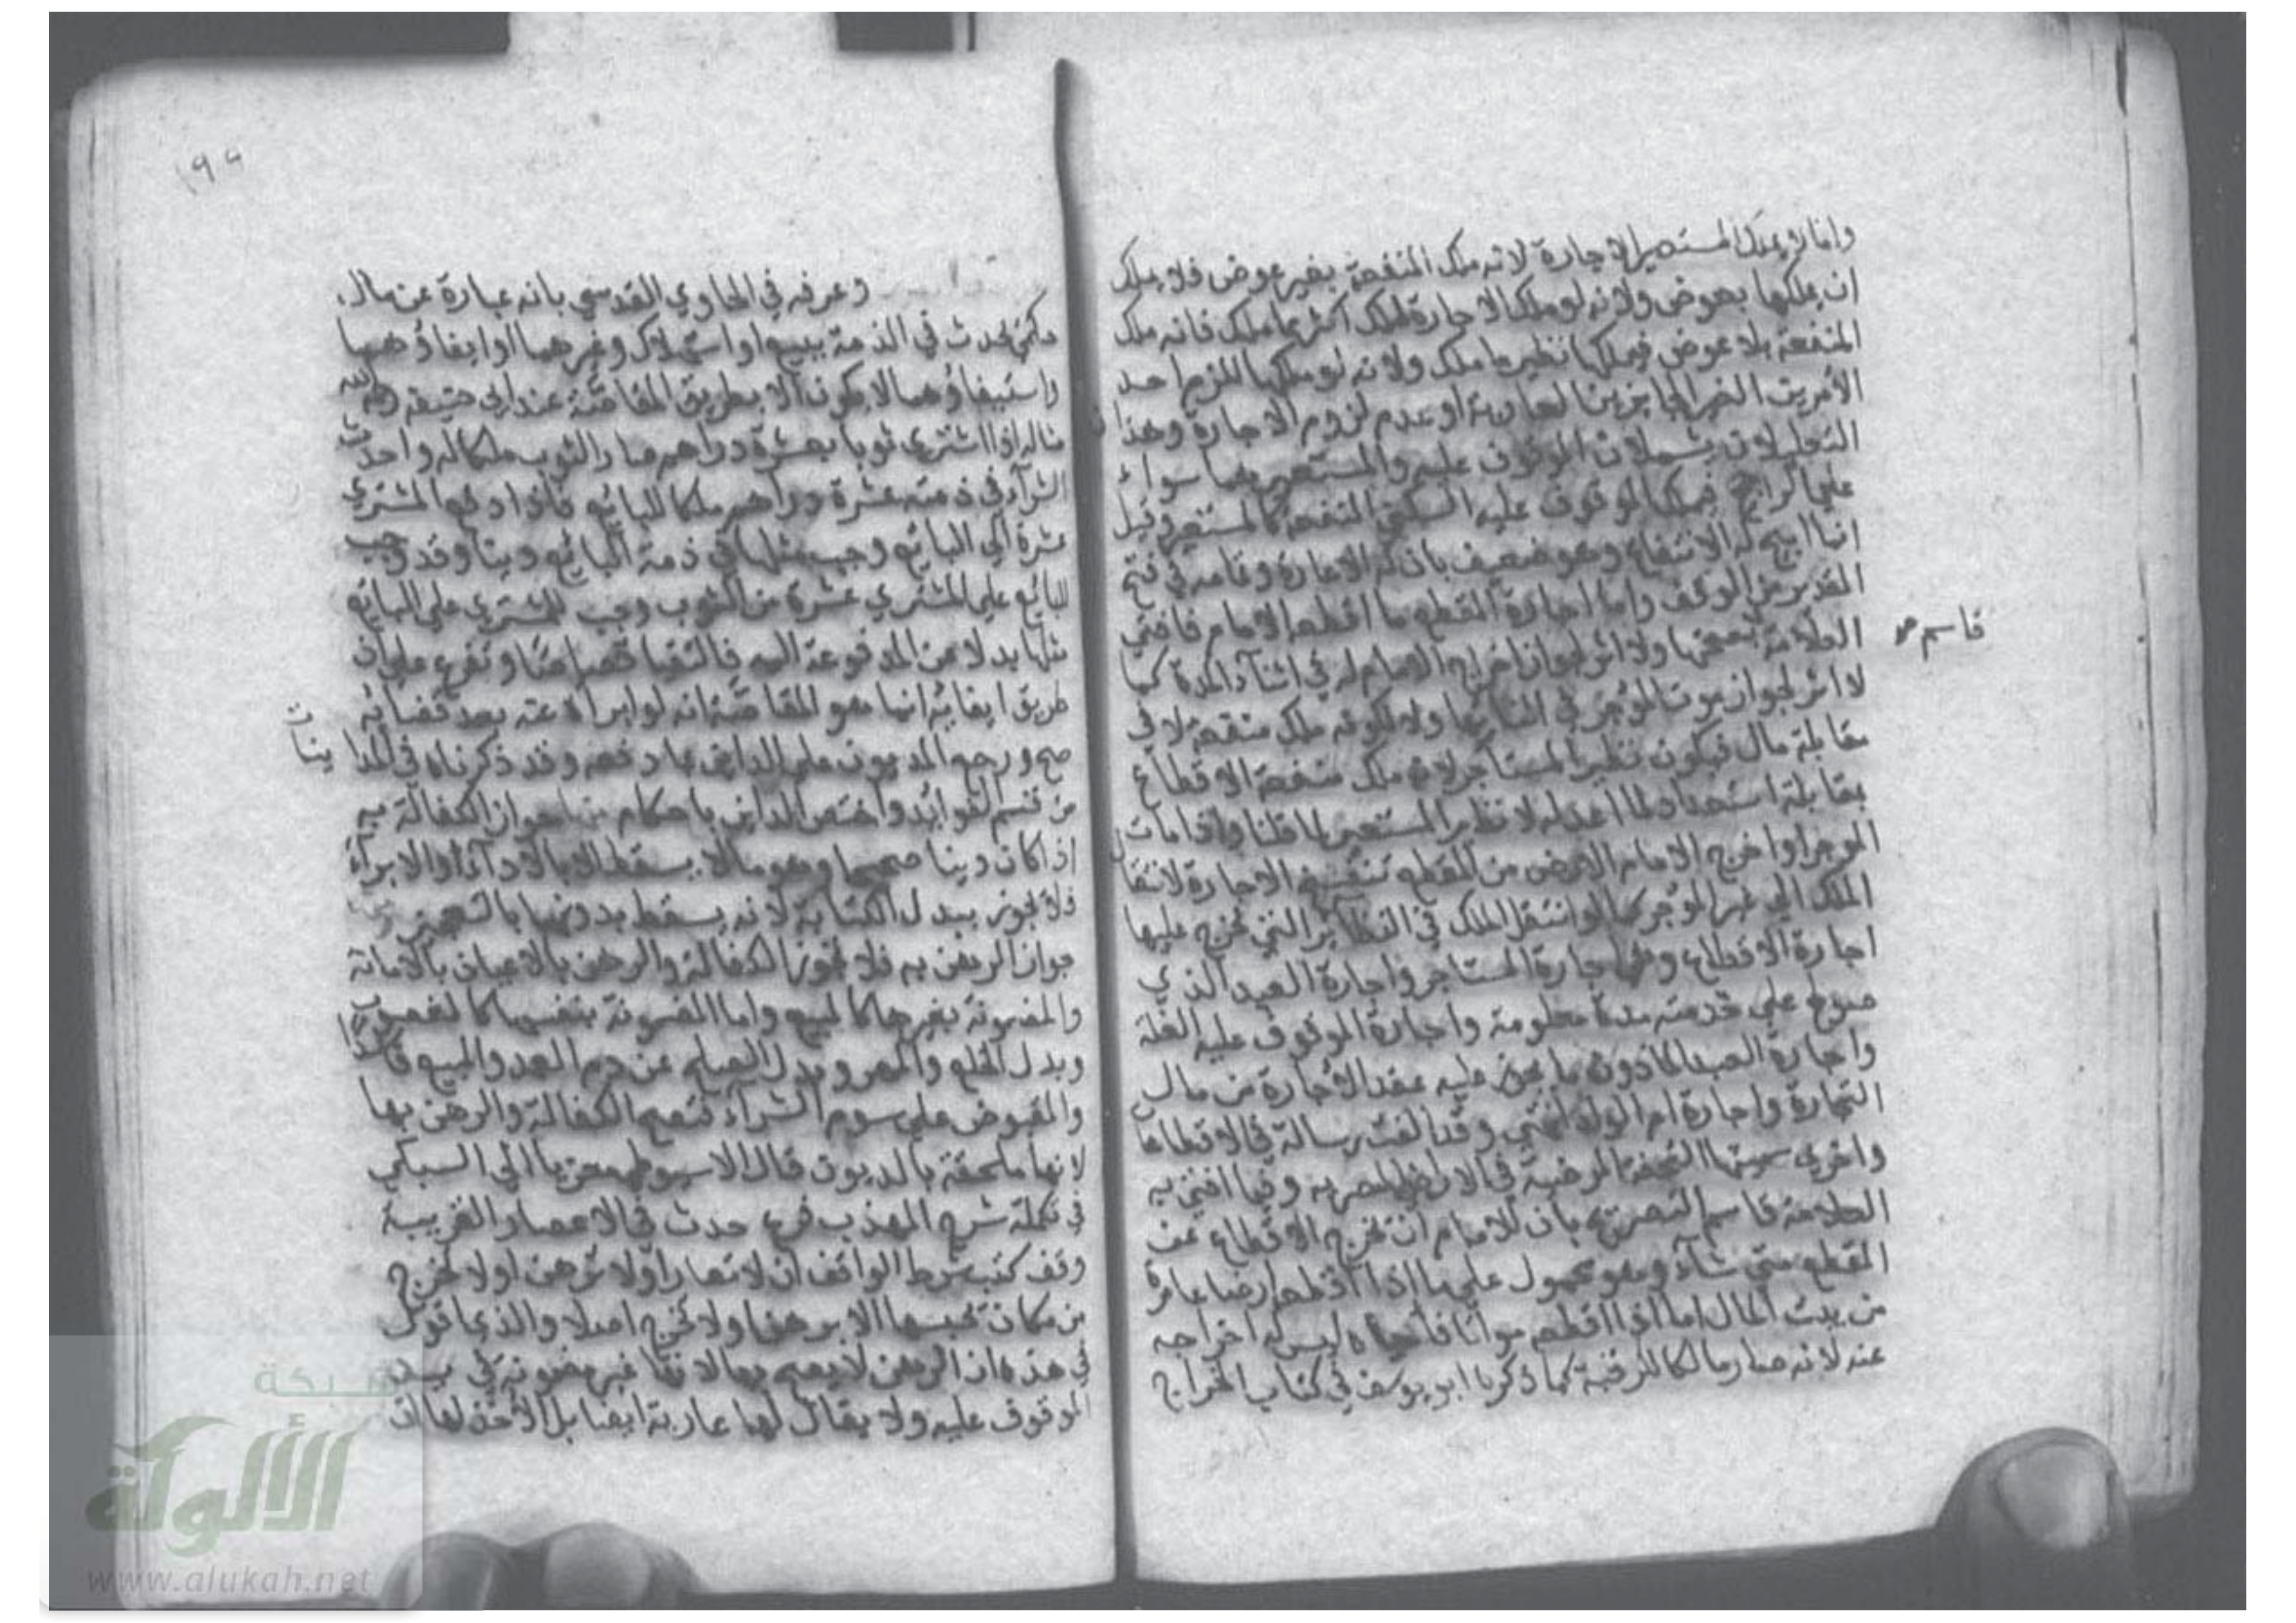 وانما لا يملك المستعير الاجارة لانه ملك المنفعة بغير عوض فلا يملك
ان يملكها بعوض ولانه لو ملك الاجارة لملك اكثر مما ملك فانه ملك
المنفعة بلا عوض فيملكها نظير ما ملك ولانه لو ملكها للزم احد
الأمرين الغير الجايزين لعارية او عدم لزوم الاجارة وهذا ن
التعليلان يشملان الموقوف عليه والمستعير وهما سواء
علي الراجح فيملك الموقوف عليه السكني المنفعة كالمستعير وقيل
انما ابيح له الانتفاع وهو ضعيف بان له الاعارة وتمامه في فتح
القدير من الوقف واما اجارة المقطع ما اقطعه الامام فافتي
العلامة بصحتها ولا اثر لجواز اخراج الامام له في اثناء المدة كما
قاسم صح
لا اثر لجواز موت المؤجر في اثنائها ولا لكونه ملك منفعة لا في
مقابلة مال فيكون نظير المستأجر لانه ملك منفعة الاقطاع
بمقابلة استعداد لما اعد له لا نظير المستعير لما قلنا واذا مات
الموجر او اخرج الامام الارض من المقطع تنفسخ الاجارة لانتقال
الملك الي غير المؤجر كما لو انتقل الملك في النظائر التي تخرج عليها
اجارة الاقطاع وهي اجارة المستاجر واجارة العبد الذي
صولح علي خدمته مدة معلومة واجارة الموقوف عليه الغلة
واجارة العبد الماذون ما يجوز عليه عقد الاجارة من مال
التجارة واجارة ام الولد انتهي وقد الفت رسالة في الاقطاعات
واخري سميتها التحفة المرضية في الاراضي المصرية وفيما افتي به
العلامة قاسم التصريح بان للامام ان يخرج الاقطاع عن
المقطع متي شاء وهو محمول علي ما اذا اقطعه ارضا عامرة
من بيت المال اما اذا اقطعه مواتا فاحياه ليس له اخراجه
عنه لانه صار مالكا للرقبة كما ذكره ابو يوسف في كتاب الخراج
١٩٥
وعرفه في الحاوي القدسي بانه عبارة عن مال
حكمي يحدث في الذمة ببيع او استهلاك وغيرهما وايفاؤهما
واستيفاؤهما لا يكون الا بطريق المقاصة عند ابي حنيفه رحمه الله
مثاله اذا اشتري ثوبا بعشرة دراهم صار الثوب ملكا له وحدث
الشرآء في ذمته عشرة دراهم ملكا للبائع فاذا دفع المشتري
عشرة الي البائع وجب مثلها في ذمة البائع دينا وقد وجب
للبائع علي المشتري عشرة من الثوب وجب للمشتري علي البائع
مثلها بدلا عن المدفوعة اليه فالتقيا قصاصا وتفرع علي ان
طريق ايفائه انما هو المقاصة انه لو ابراه عنه بعد قضائه
صح ورجع المديون علي الداين بما دفعه وقد ذكرناه في المدا
ينات
من قسم الفوائد واختص الداين باحكام منها جواز الكفالة به
اذا كان دينا صحيحا وهو ما لا يسقط الا بالادآء او الابرآء
فلا يجوز ببدل الكتابة لانه يسقط بدونهما بالتعجيز
جواز الرهن به فلا تجوز الكفالة والرهن بالاعيان بالامانة
والمضمونة بغيرها كالمبيع واما المضمونة بنفسها كالمغصوب
وبدل الخلع والمهر وبدل الصلح عن دم العمد والمبيع فاسدا
والمقبوض علي سوم الشرآء فتصح الكفالة والرهن بها
لانها ملحقة بالديون قال الاسيوطي معزيا الي السبكي
في تكملة شرح المهذب فرع حدث في الاعصار القريبة
وقف كتب شرط الواقف ان لا تعار او لا ترهن او لا تخرج
من مكان تحبسها الا برهن او لا تخرج اصلا والذي اقول
في هذه ان الرهن لا يصح بها لانها غير مضمونة في يد
الموقوف عليه ولا يقال لها عارية ايضا بل الاخذ لها ان
شبكة
الألوكة
www.alukah.net